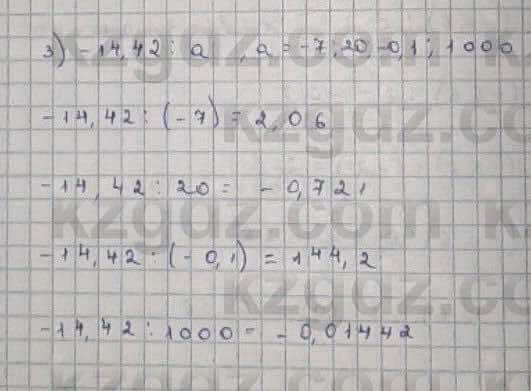 3) -14,42 : a , a = -7; 20; -0,1; 1000
-14,42 : (-7) = 2,06
-14,42 : 20 = -0,721
-14,42 : (-0,1) = 144,2
-14,42 : 1000 = -0,01442
kzgdz.com